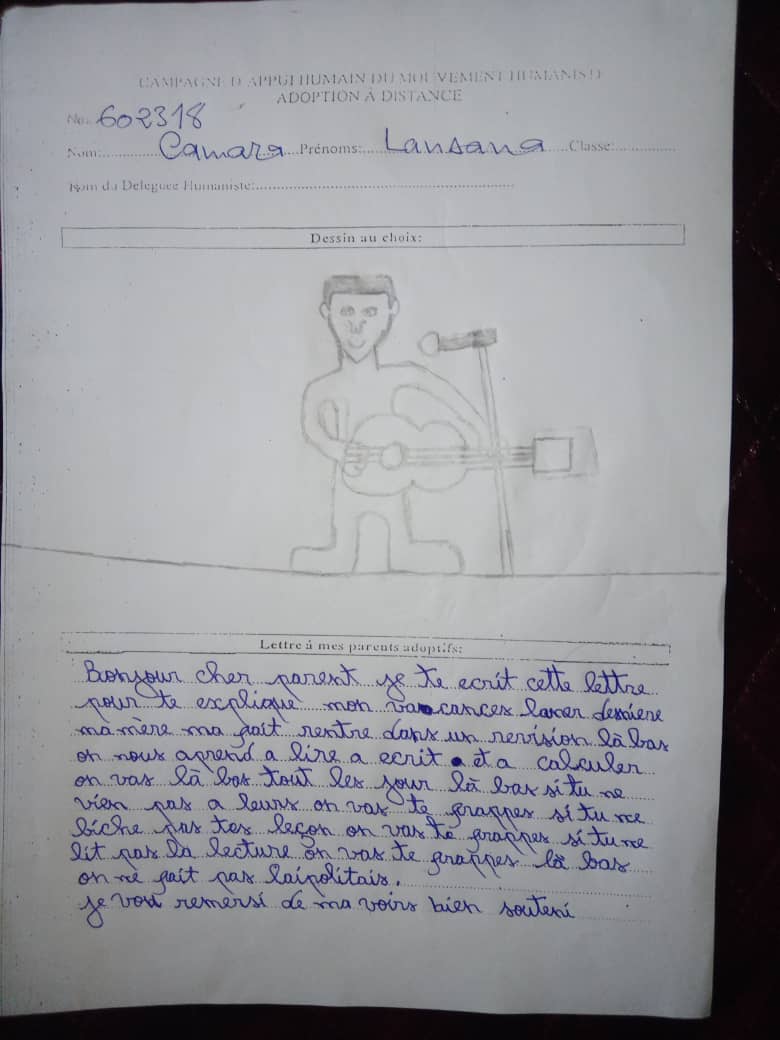 CAMPAGNE D'APPUI HUMAIN DU MOUVEMENT HUMANISTE
ADOPTION À DISTANCE
No. 602318
Nom:..............Camara...Prénoms:....Lansana....Classe:..............
Nom du Deleguee Humaniste:..........................................................
Dessin au choix:
Lettre à mes parents adoptifs:
Bonjour cher parent je te ecrit cette lettre
pour te explique mon vacances laner derniere
ma mère ma fait rentre dans un revision là bas
on nous aprend a lire a ecrit et a calculer
on vas là bas tout les jour là bas si tu ne
vien pas a leurs on vas te frappes si tu ne
biche pas tes leçon on vas te frappes si tu ne
lit pas la lecture on vas te frappes là bas
on ne fait pas laipolitais.
je vou remersi de ma voirs bien souteni